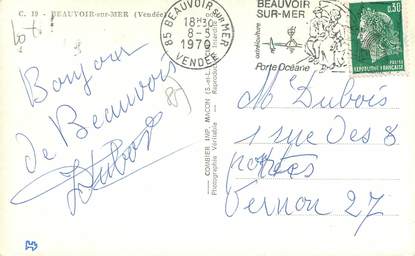 C. 19 - BEAUVOIR-sur-MER (Vendée)
85 BEAUVOIR-SUR-MER
18H30
8-5
1970
VENDÉE
BEAUVOIR
SUR-MER
ostréiculture
Porte Océane
0,30
POSTES
REPUBLIQUE FRANÇAISE
Bonjour
de Beauvoir
Dubois
85
COMBIER IMP. MACON (S.-et-L.)
Photographie Véritable
Mr Dubois
1 rue des 8
portes
Vernon 27